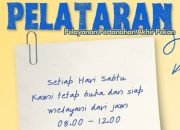 PELATARAN
Pelayanan Pertanahan Akhir Pekan
Setiap Hari Sabtu
Kami tetap buka dan siap
melayani dari jam
08.00 - 12.00